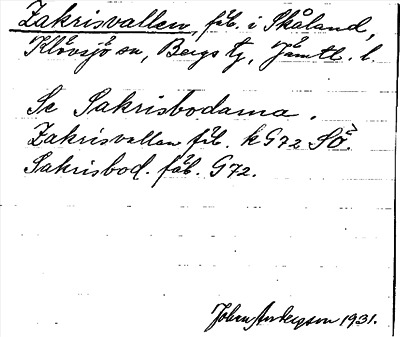 Zakrisvallen, fäb. i Skåland,
Klövsjö sn, Bergs tg, Jämtl. l.
Se Sakrisbodarna.
Zakrisvallen fäb. k G72 SÖ
Sakrisbod. fäb. G72.
Johan Anderson 1931.